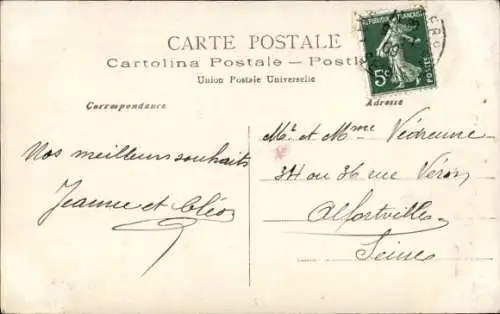 CARTE POSTALE
Cartolina Postale — Postk
Union Postale Universelle
Correspondance
Adresse
REPUBLIQUE FRANÇAISE
5c
POSTES
Nos meilleurs souhaits
Jeanne et Cléo
Mr et Mme Védrenne
34 ou 36 rue Véron
Alfortville
Seine